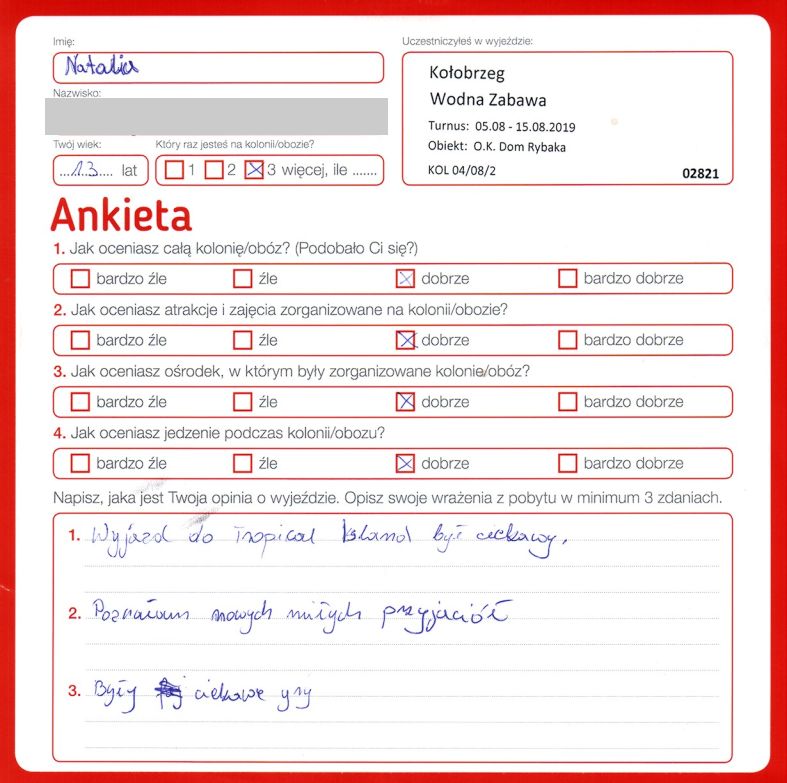 Imię:
Natalia
Nazwisko:
Twój wiek:
Który raz jesteś na kolonii/obozie?
....13.... lat
1 2 3 więcej, ile .......
Uczestniczyłeś w wyjeździe:
Kołobrzeg
Wodna Zabawa
Turnus: 05.08 - 15.08.2019
Obiekt: O.K. Dom Rybaka
KOL 04/08/2 02821
Ankieta
1. Jak oceniasz całą kolonię/obóz? (Podobało Ci się?)
bardzo źle źle dobrze bardzo dobrze
2. Jak oceniasz atrakcje i zajęcia zorganizowane na kolonii/obozie?
bardzo źle źle dobrze bardzo dobrze
3. Jak oceniasz ośrodek, w którym były zorganizowane kolonie/obóz?
bardzo źle źle dobrze bardzo dobrze
4. Jak oceniasz jedzenie podczas kolonii/obozu?
bardzo źle źle dobrze bardzo dobrze
Napisz, jaka jest Twoja opinia o wyjeździe. Opisz swoje wrażenia z pobytu w minimum 3 zdaniach.
1. Wyjazd do Tropical Island był ciekawy.
2. Poznałam nowych miłych przyjaciół
3. Były ciekawe gry